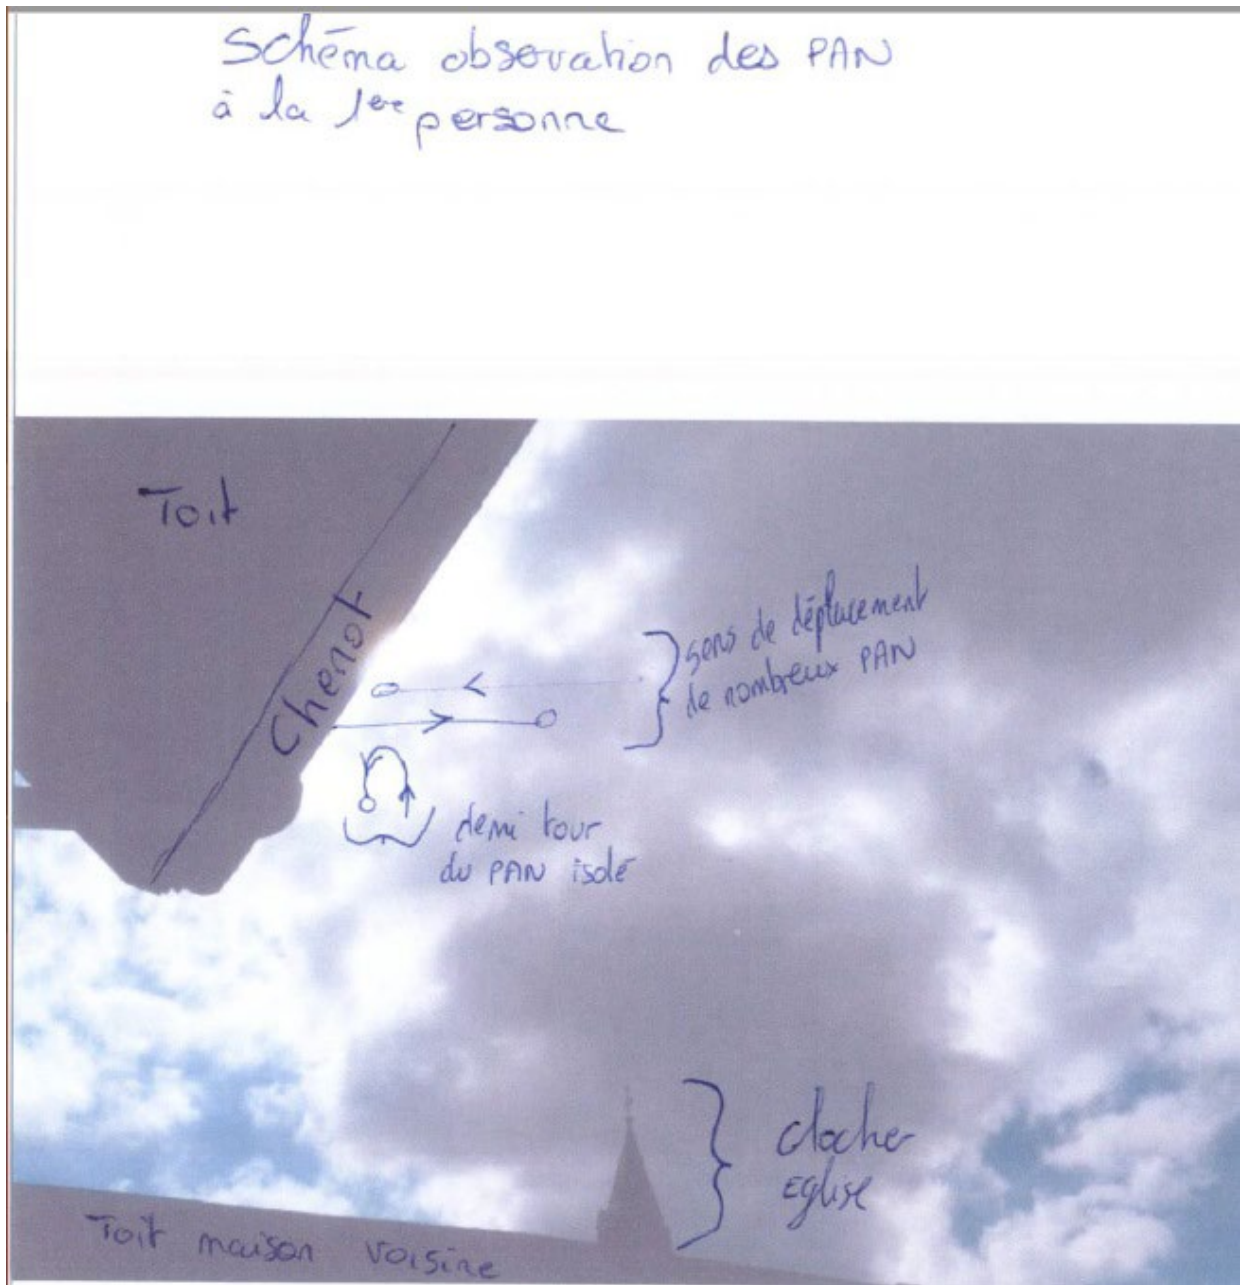 Schéma observation des PAN
à la 1ere personne
Toit
Chenot
sens de déplacement
de nombreux PAN
demi tour
du PAN isolé
clocher
eglise
Toit maison voisine